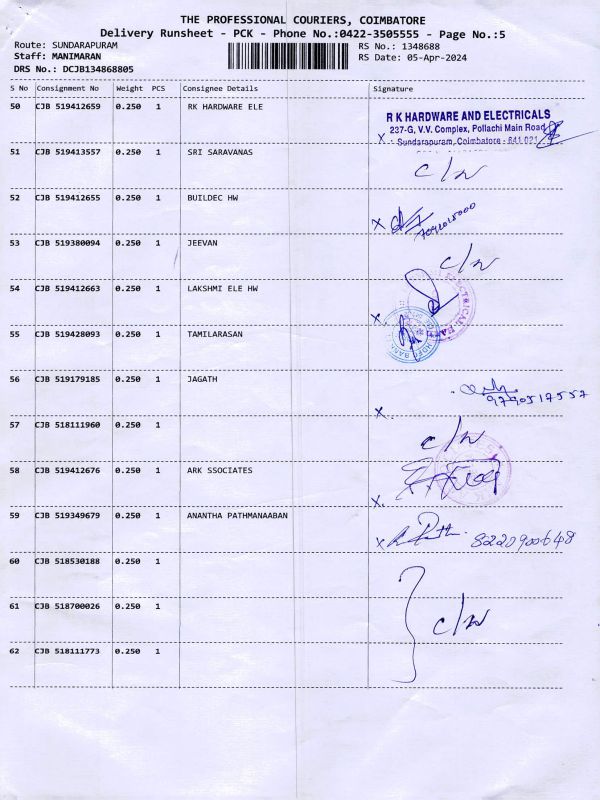 THE PROFESSIONAL COURIERS, COIMBATORE
Delivery Runsheet - PCK - Phone No.:0422-3505555 - Page No.:5
Route: SUNDARAPURAM RS No.: 1348688
Staff: MANIMARAN RS Date: 05-Apr-2024
DRS No.: DCJB134868805
S No Consignment No Weight PCS Consignee Details Signature
50 CJB 519412659 0.250 1 RK HARDWARE ELE
R K HARDWARE AND ELECTRICALS
237-G, V.V. Complex, Pollachi Main Road
X. Sundarapuram, Coimbatore - 641 021
51 CJB 519413557 0.250 1 SRI SARAVANAS
C/N
52 CJB 519412655 0.250 1 BUILDEC HW
X
53 CJB 519380094 0.250 1 JEEVAN
C/N
54 CJB 519412663 0.250 1 LAKSHMI ELE HW
X.
55 CJB 519428093 0.250 1 TAMILARASAN
56 CJB 519179185 0.250 1 JAGATH
9790517557
X.
57 CJB 518111960 0.250 1
C/N
58 CJB 519412676 0.250 1 ARK SSOCIATES
X.
59 CJB 519349679 0.250 1 ANANTHA PATHMANAABAN
X 8220900648
60 CJB 518530188 0.250 1
61 CJB 518700026 0.250 1
C/N
62 CJB 518111773 0.250 1